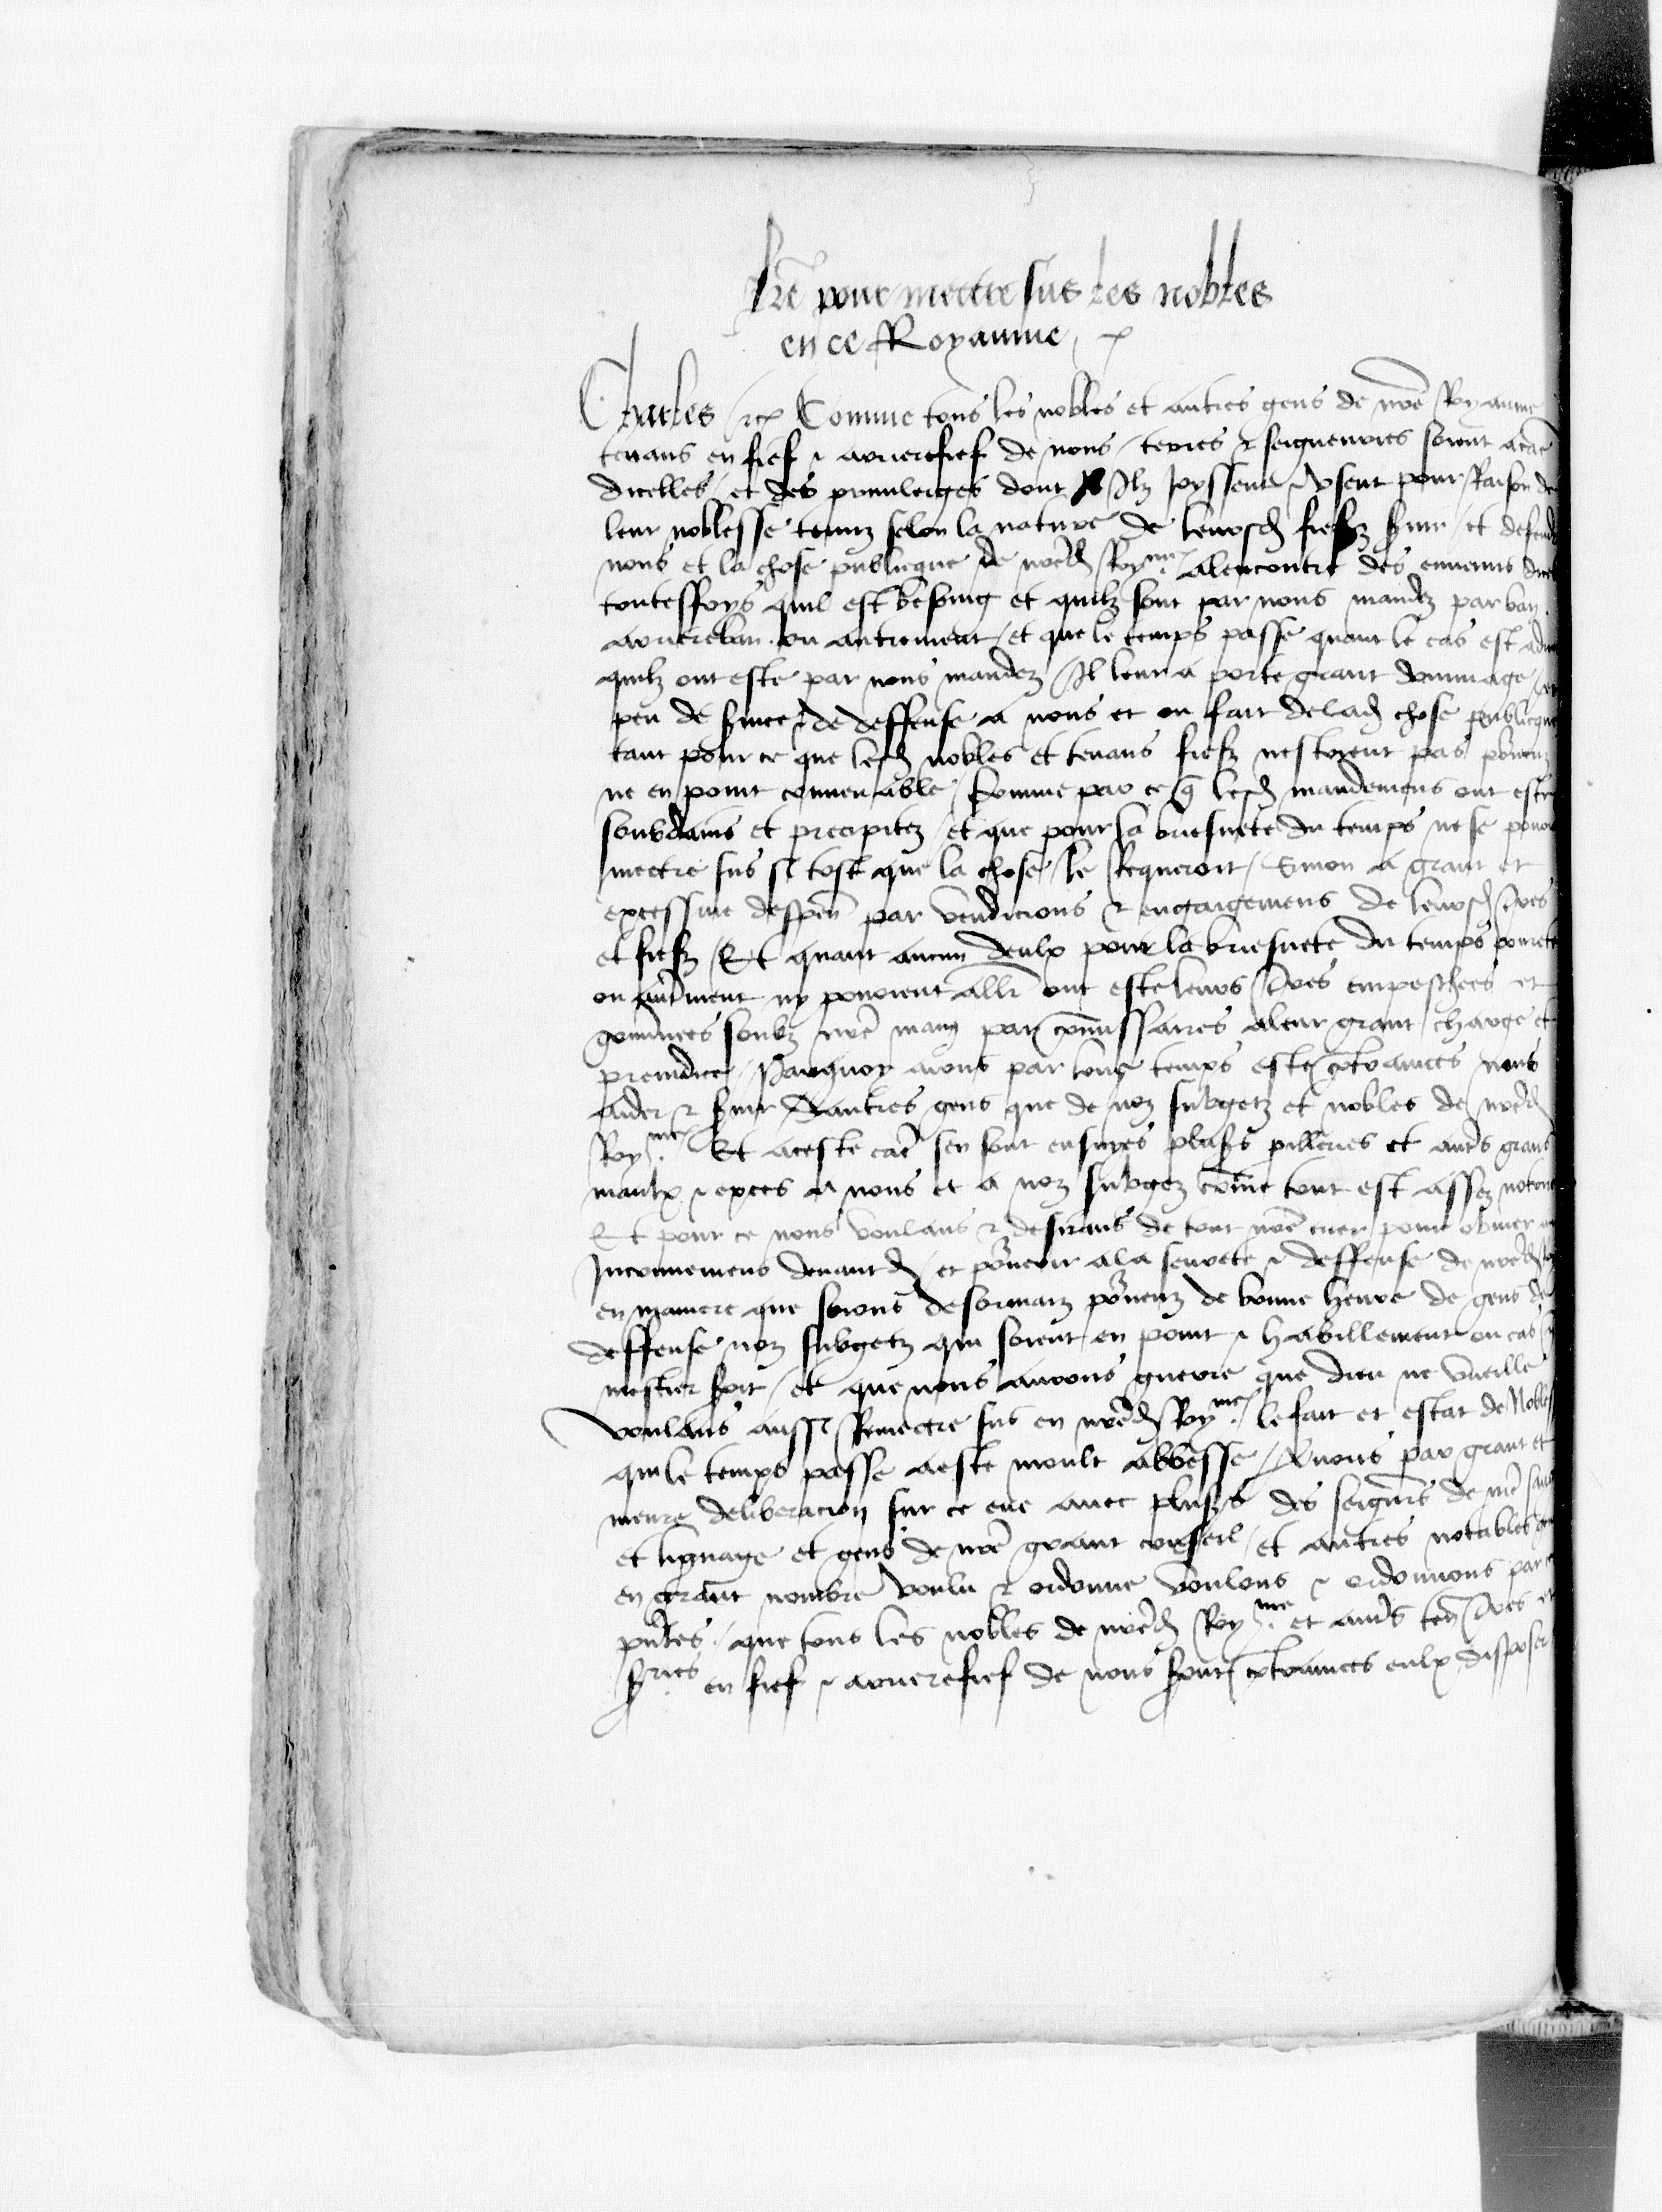 Lrẽ pour mectre sus les nobles
en ce Royaume
Charles etc Comme tous les nobles et autres gens de nrẽ Royaume
tenans en fief et arrierefief de nous terres et seigneuries soient a cãe
dicelles et des privileiges dont Ilz joyssent et usent pour Raison de
leur noblesse tenuz selon la nature de leursd fiefz svir et defendr
nous et la chose publicque de nrẽd Roy.me alencontre des ennemis dicel
toutesfoys quil est besoing et quilz sont par nous mandez par ban
arriereban ou autrement et que le temps passe quant le cas est adve
quilz ont este par nous mandez Il leur a porte grant dommage et
peu de svice et de deffense a nous et ou fait de lad chose publicque
tant pour ce que lesd nobles et tenans fiefz nestoient pas pourveuz
ne en point convenable comme par ce q lesd mandemens ont este
soubdains et precipitez et que pour la briefvete du temps ne se povoient
mectre sus si tost que la chose le Requeroit Sinon a grant et
excessive despen par vendicions et engaigemens de leursd tres
et fiefz Et quant aucun deulx pour la briefvete du temps povrete
ou autrmẽnt ny povoient allr ont este leurs tres empeschees et
gouvnees soubz nrẽ main par cõmissaires a leur grant charge et
preiudice Parquoy avons par long temps este cõtraincts nous
aider et svir dautres gens que de noz subgetz et nobles de nrẽd
Roy.me Et a ceste cãe sen sont ensuyes plusrs pilleries et autrs grans
maulx et exces a nous et a noz subgez cõme tout est assez notoire
Et pour ce nous voulans et desirans de tout nrẽ cuer pour obvier aux
Inconveniens devantd et pourveoir a la seurete et deffense de nrẽd
en maniere que soions desormaiz pourveuz de bonne heure de gens de
deffense noz subgetz qui soient en point et habillement ou cas q
mestier soit et que nous aurons guerre que dieu ne vueille
voulans aussi Remectre sus en nrẽd Roy.me le fait et estat de Nobless
qui le temps passe a este moult abbesse Avons par grant et
meure deliberacion sur ce eue avec plusrs des seigrs de nrẽ sang
et lignage et gens de nrẽ grant conseil et autres notables gens
en grant nombre voulu et ordonne voulons et ordonnons par c
pñtes que tous les nobles de nrẽd Roy.me et autrs ten tres et
sries en fief et arrierefief de nous soient cõtraincts eulx disposer